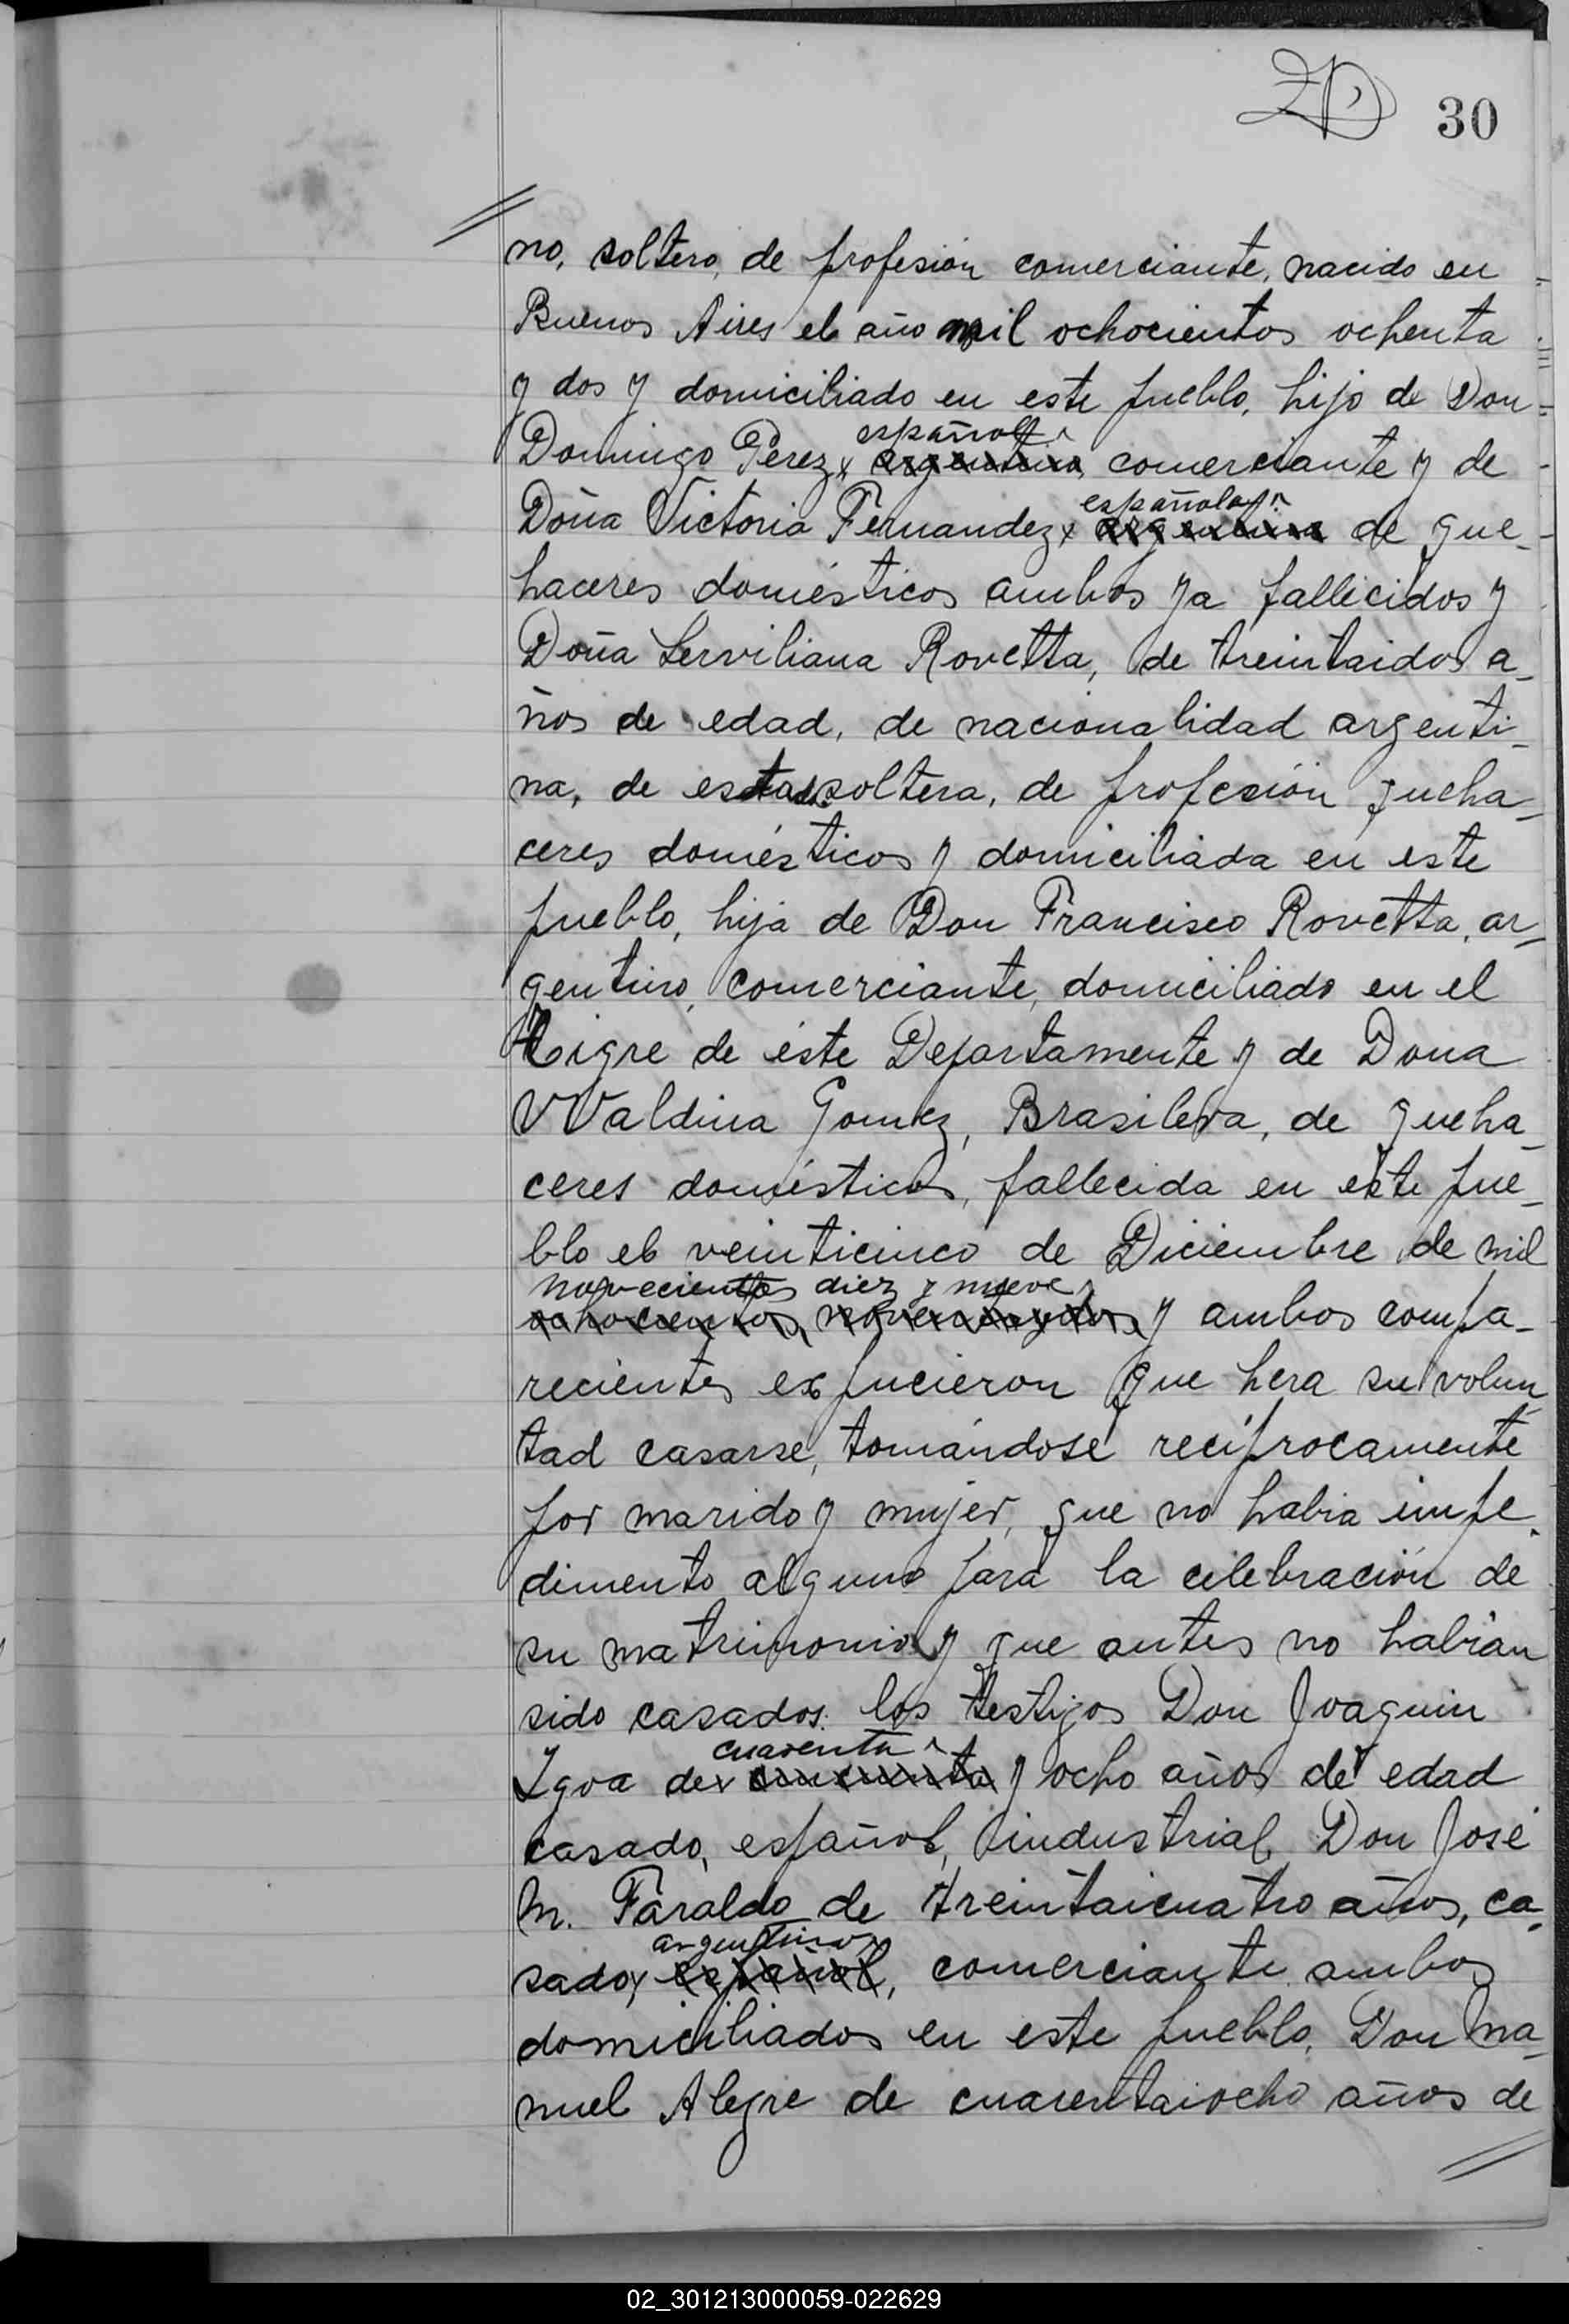 30
no, soltero, de profesión comerciante, nacido en
Buenos Aires el año mil ochocientos ochenta
y dos y domiciliado en este pueblo, hijo de Don
español
Domingo Perez x argentino, comerciante y de
española
Doña Victoria Fernandez x argentina de que-
haceres domésticos ambos ya fallecidos y
Doña Serviliana Rovetta, de treintaidos a-
ños de edad, de nacionalidad argenti-
na, de estado soltera, de profesión queha-
ceres domésticos y domiciliada en este
pueblo, hija de Don Francisco Rovetta, ar-
gentino, comerciante, domiciliado en el
Tigre de éste Departamente y de Dona
Waldina Gomez, Brasilera, de queha-
ceres domésticos, fallecida en este pue-
blo el veinticinco de Diciembre de mil
novecientos diez y nueve
ochocientos, noventaydos y ambos compa-
recientes expucieron que hera su volun-
tad casarse, tomándose recíprocamente
por marido y mujer, que no habia impe-
dimento alguno para la celebración de
su matrimonio y que antes no habían
sido casados. los testigos Don Joaquin
cuarenta
Igoa de x cincuenta y ocho años de edad
casado, español, industrial, Don José
M. Faraldo de treintaicuatro años, ca-
argentino
sado x español, comerciante ambos
domiciliados en este pueblo, Don Ma-
nuel Alegre de cuarentaiocho años de
02_301213000059-022629